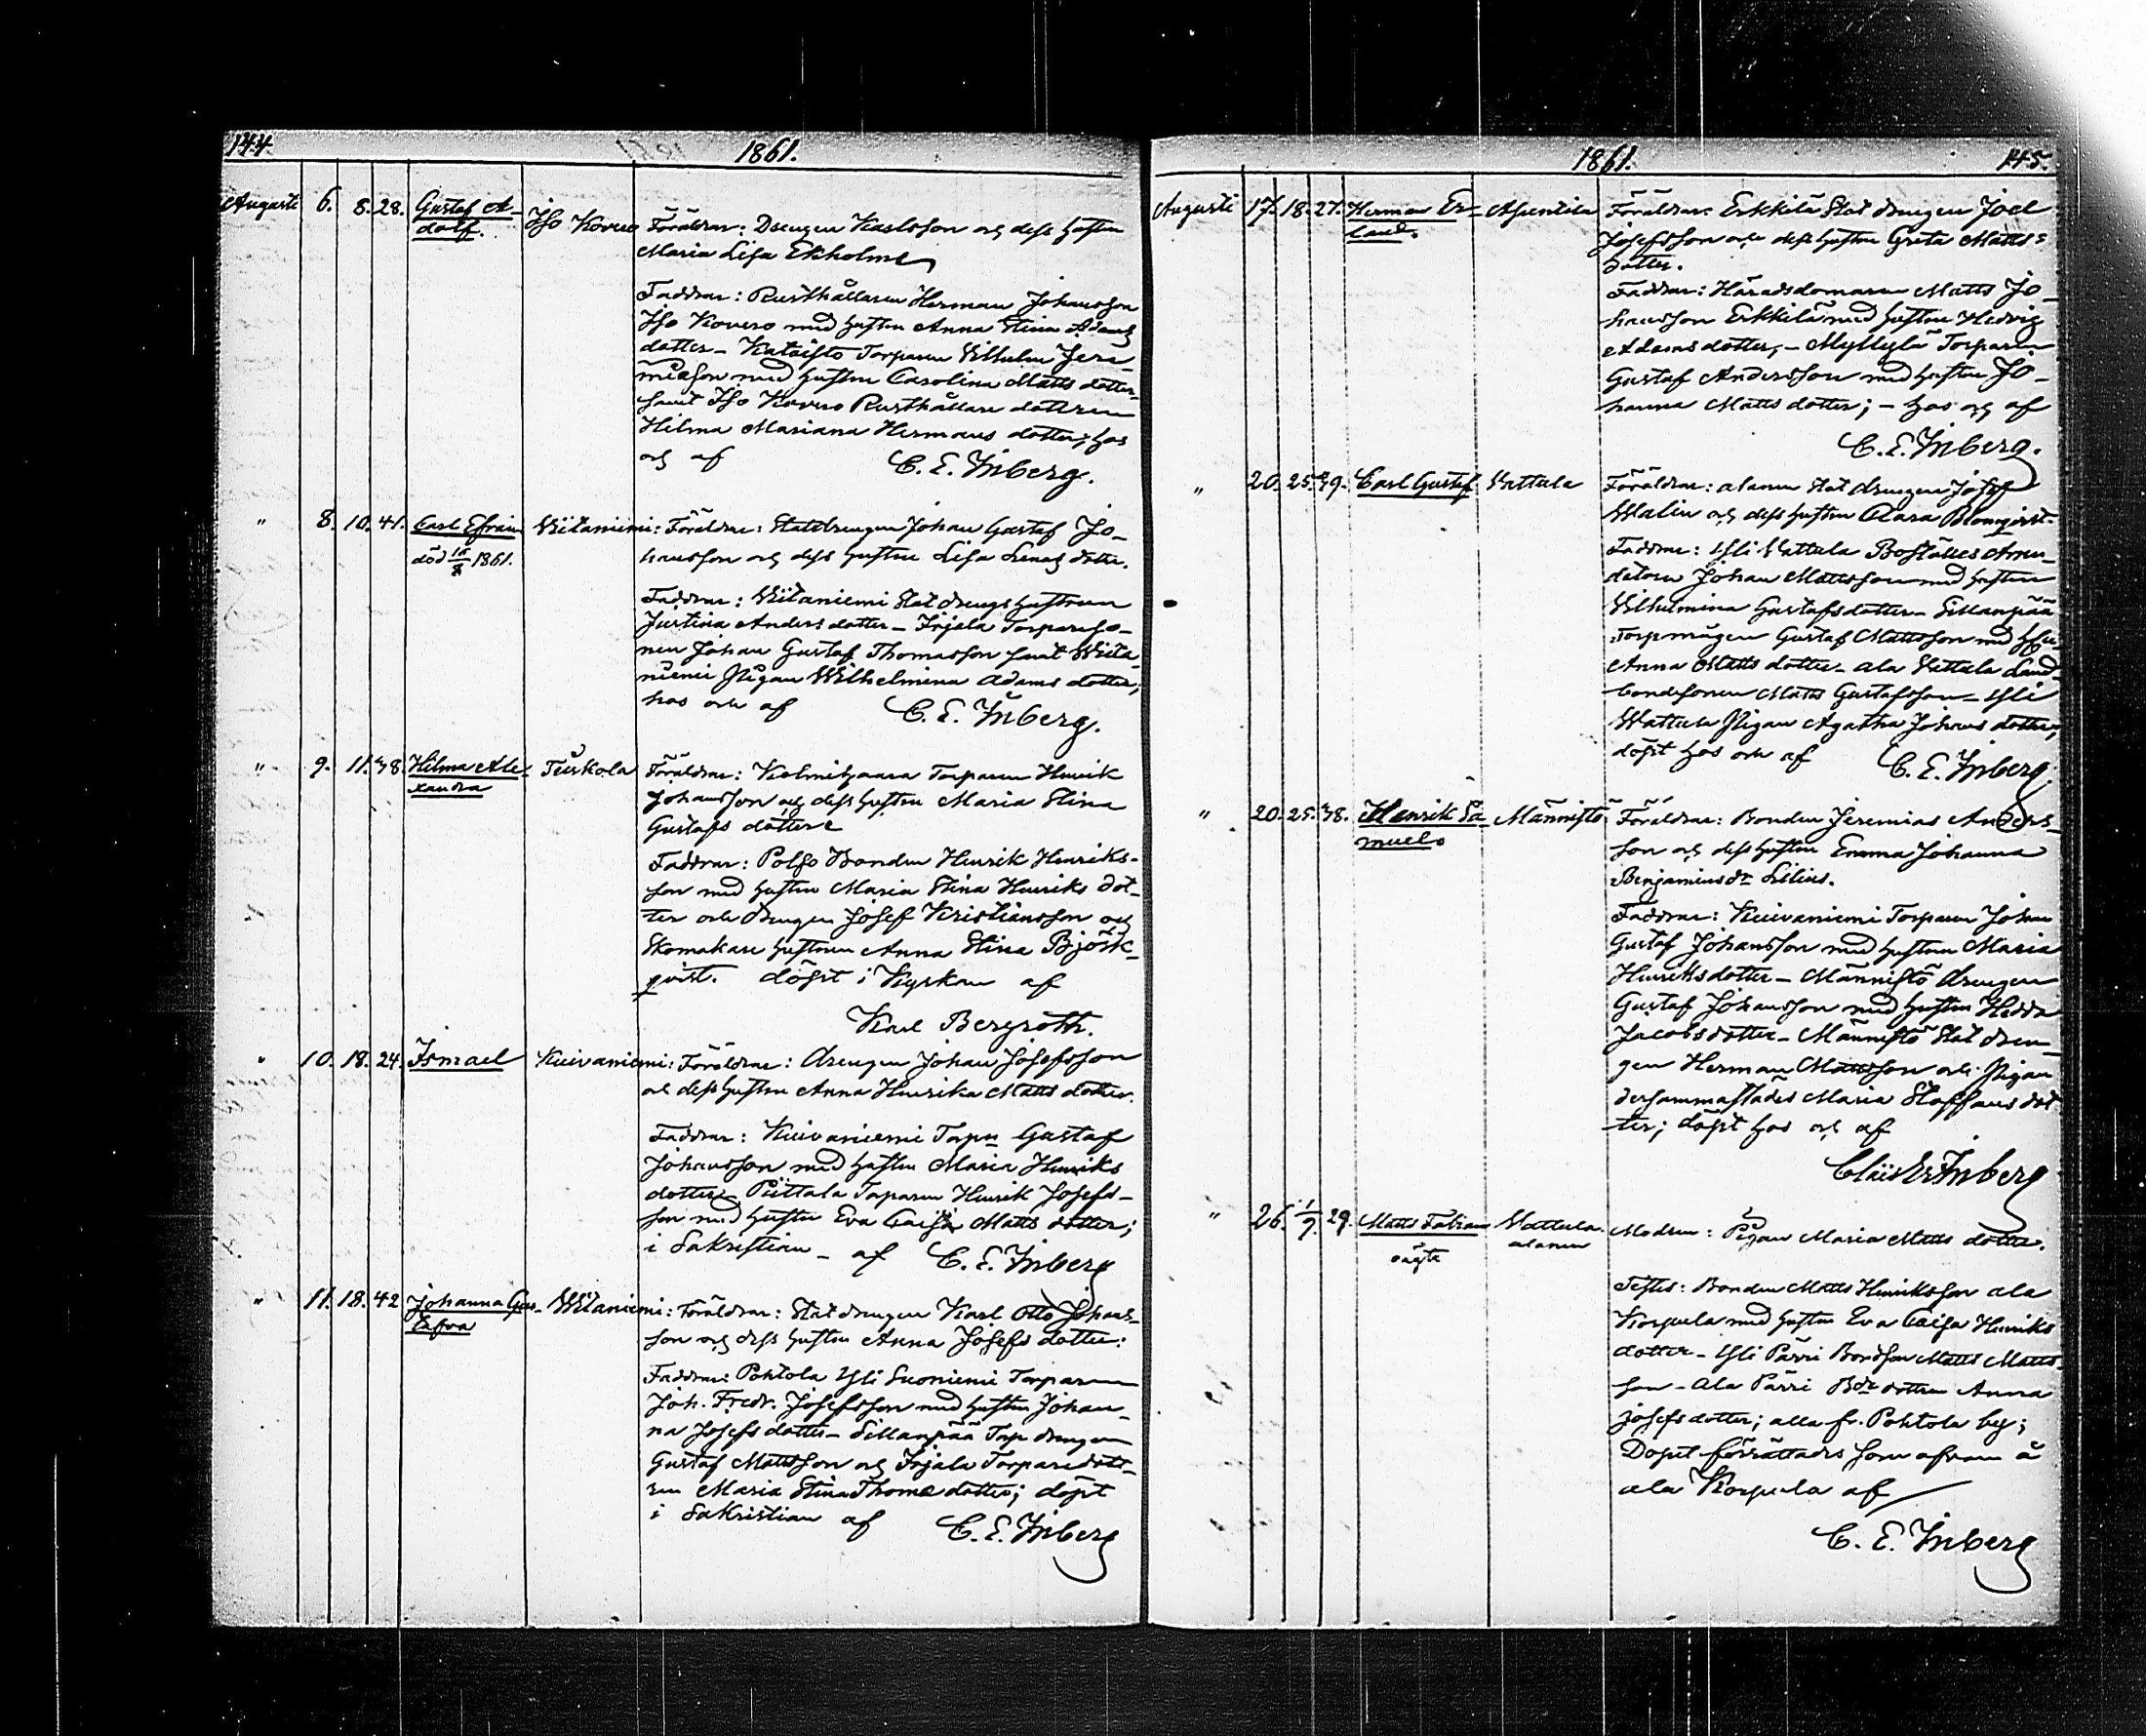 144. 1861.
Augusti 6. 8. 28. Gustaf A- Iso Kovero Föräldrar: Drengen Karlsson och dess hustru
dolf. Maria Lisa Ekholm
Faddrar: Rusthållaren Herman Johansson
Iso Kovero med hustru Anna Stina Adams
dotter – Torparen Vilhelm Jere-
miasson med hustru Carolina Matts dotter
samt Iso Kovero Rusthållare dottren
Hilma Mariana Hermans dotter; hos
och af C. E. Inberg.
" 8. 10. 41. Carl Efraim Wiitaniemi: Föräldrar: Statdrengen Johan Gustaf Jo-
död 15/8 1861. hansson och dess hustru Lisa dotter.
Faddrar: Wiitaniemi Stat drengs hustrun
Justina Anders dotter – Irjala Torpareso-
nen Johan Gustaf Thomasson samt Wiita-
niemi Pigan Wilhelmina Adams dotter;
hos och af C. E. Inberg.
" 9. 11. 38. Hilma Ale- Turkola Föräldrar: Torparen Henrik
xandra Johansson och dess hustru Maria Stina
Gustafs dotter
Faddrar: Polso Bonden Henrik Henriks-
son med hustru Maria Stina Henriks dot-
ter och Drengen Josef Kristiansson och
Skomakare hustrun Anna Stina Björk-
qvist. döpt i Kyrkan af
Karl Bergroth.
" 10. 18. 24. Ismael Kuivaniemi: Föräldrar: Drengen Johan Josefsson
och dess hustru Anna Henrika Matts dotter.
Faddrar: Kuivaniemi Torpn Gustaf
Johansson med hustru Maria Henriks
dotter – Piittala Torparen Henrik Josefs-
son med hustru Eva Caisa Matts dotter;
i Sakristian – af C. E. Inberg
" 11. 18. 42 Johanna Gus- Wiitaniemi: Föräldrar: Stat drengen Karl Otto Johans-
tafva son och dess hustru Anna Josefs dotter:
Faddrar: Pohtola Yli Suoniemi Torparen
Joh. Fredr. Josefsson med hustru Johan-
na Josefs dotter – Sillanpää Torp drengen
Gustaf Mattsson och Irjala Torparedott-
ren Maria Stina Thoms dotter; döpt
i Sakristian af C. E. Inberg
1861. 145.
Augusti 17. 18. 27. Herman Er- Föräldrar: Erkkilä Stat drengen Joel
land. Josefsson och dess hustru Greta Matts-
dotter.
Faddrar: Häradsdomaren Matts Jo-
hansson Erkkilä med hustru Hedvig
Adamsdotter, – Myllylä Torparen
Gustaf Andersson med hustru Jo-
hanna Matts dotter; – hos och af
C. E. Inberg.
" 20. 25. 39. Carl Gustaf Vattula Föräldrar: alanen Stat drengen Josef
Walin och dess hustru Clara Blomqvist.
Faddrar: Yli Vattula Boställes Arren-
datorn Johan Mattsson med hustru
Vilhelmina Gustafsdotter – Sillanpää
Torpmågen Gustaf Mattsson med
Anna Matts dotter – ala Vattula Land-
bondesonen Matts Gustafsson – Yli
Wattula Pigan Agatha Johans dotter;
döpt hos och af C. E. Inberg.
" 20. 25. 38. Henrik Sa- Männistö Föräldrar: Bonden Jeremias Anders-
muel. son och dess hustru Emma Johanna
Benjaminsdr Lilius.
Faddrar: Kuivaniemi Torparen Johan
Gustaf Johansson med hustru Maria
Henriksdotter – Männistö Drengen
Gustaf Johansson med hustru Hedda
Jacobsdotter – Männistö Stat dren-
gen Herman Mattsson och Pigan
dersammastädes Maria Staffans dot
ter; döpt hos och af
Claës Er. Inberg
" 26. 1/9. 29. Matts Fabian Vattula Modren: Pigan Maria Matts dotter.
oägta alanen
Testes: Bonden Matts Henriksson ala
Korpela med hustru Eva Caisa Henriks
dotter – Yli Pärri Bondson Matts Matts-
son – Ala Pärri Bde dottren Anna
Josefs dotter; alla fr. Pohtola by;
Dopet förrättades som ofvan å
ala Korpela af
C. E. Inberg